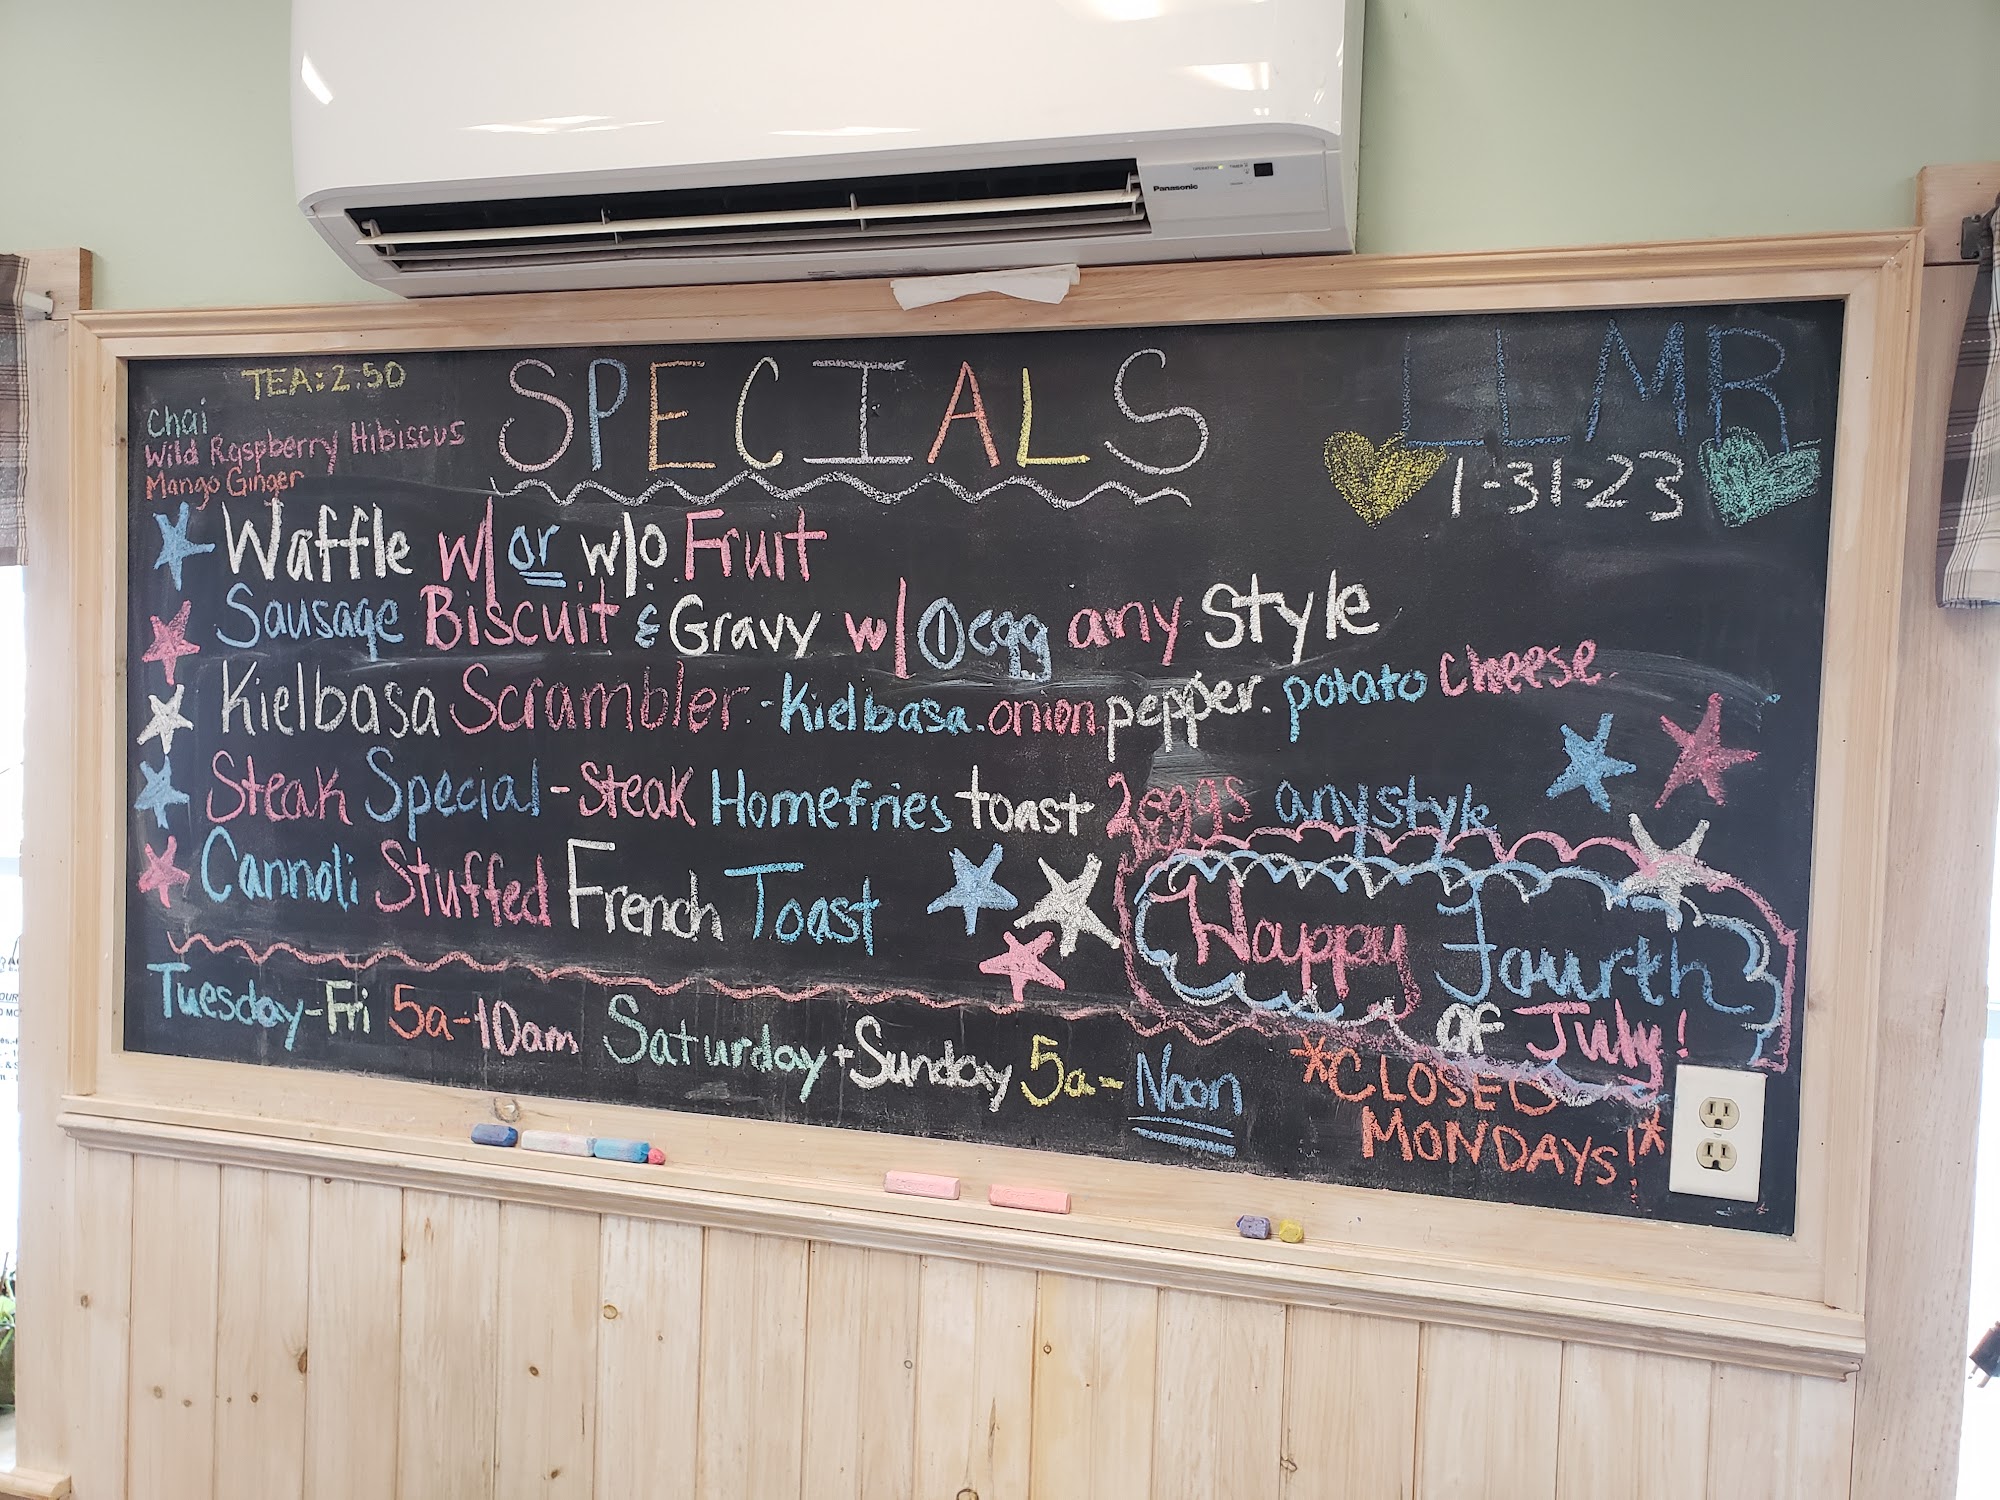 Panasonic
TEA: 2.50
Chai
Wild Raspberry Hibiscus
Mango Ginger
SPECIALS
LLMR
1-31-23
Waffle w/ or w/o Fruit
Sausage Biscuit & Gravy w/ 1 egg any style
Kielbasa Scrambler - Kielbasa. onion pepper. potato cheese.
Steak Special - Steak Homefries toast 2 eggs any style
Cannoli Stuffed French Toast
Happy Fourth
of July!
Tuesday-Fri 5a-10am Saturday + Sunday 5a- Noon
*CLOSED
MONDAYS!*